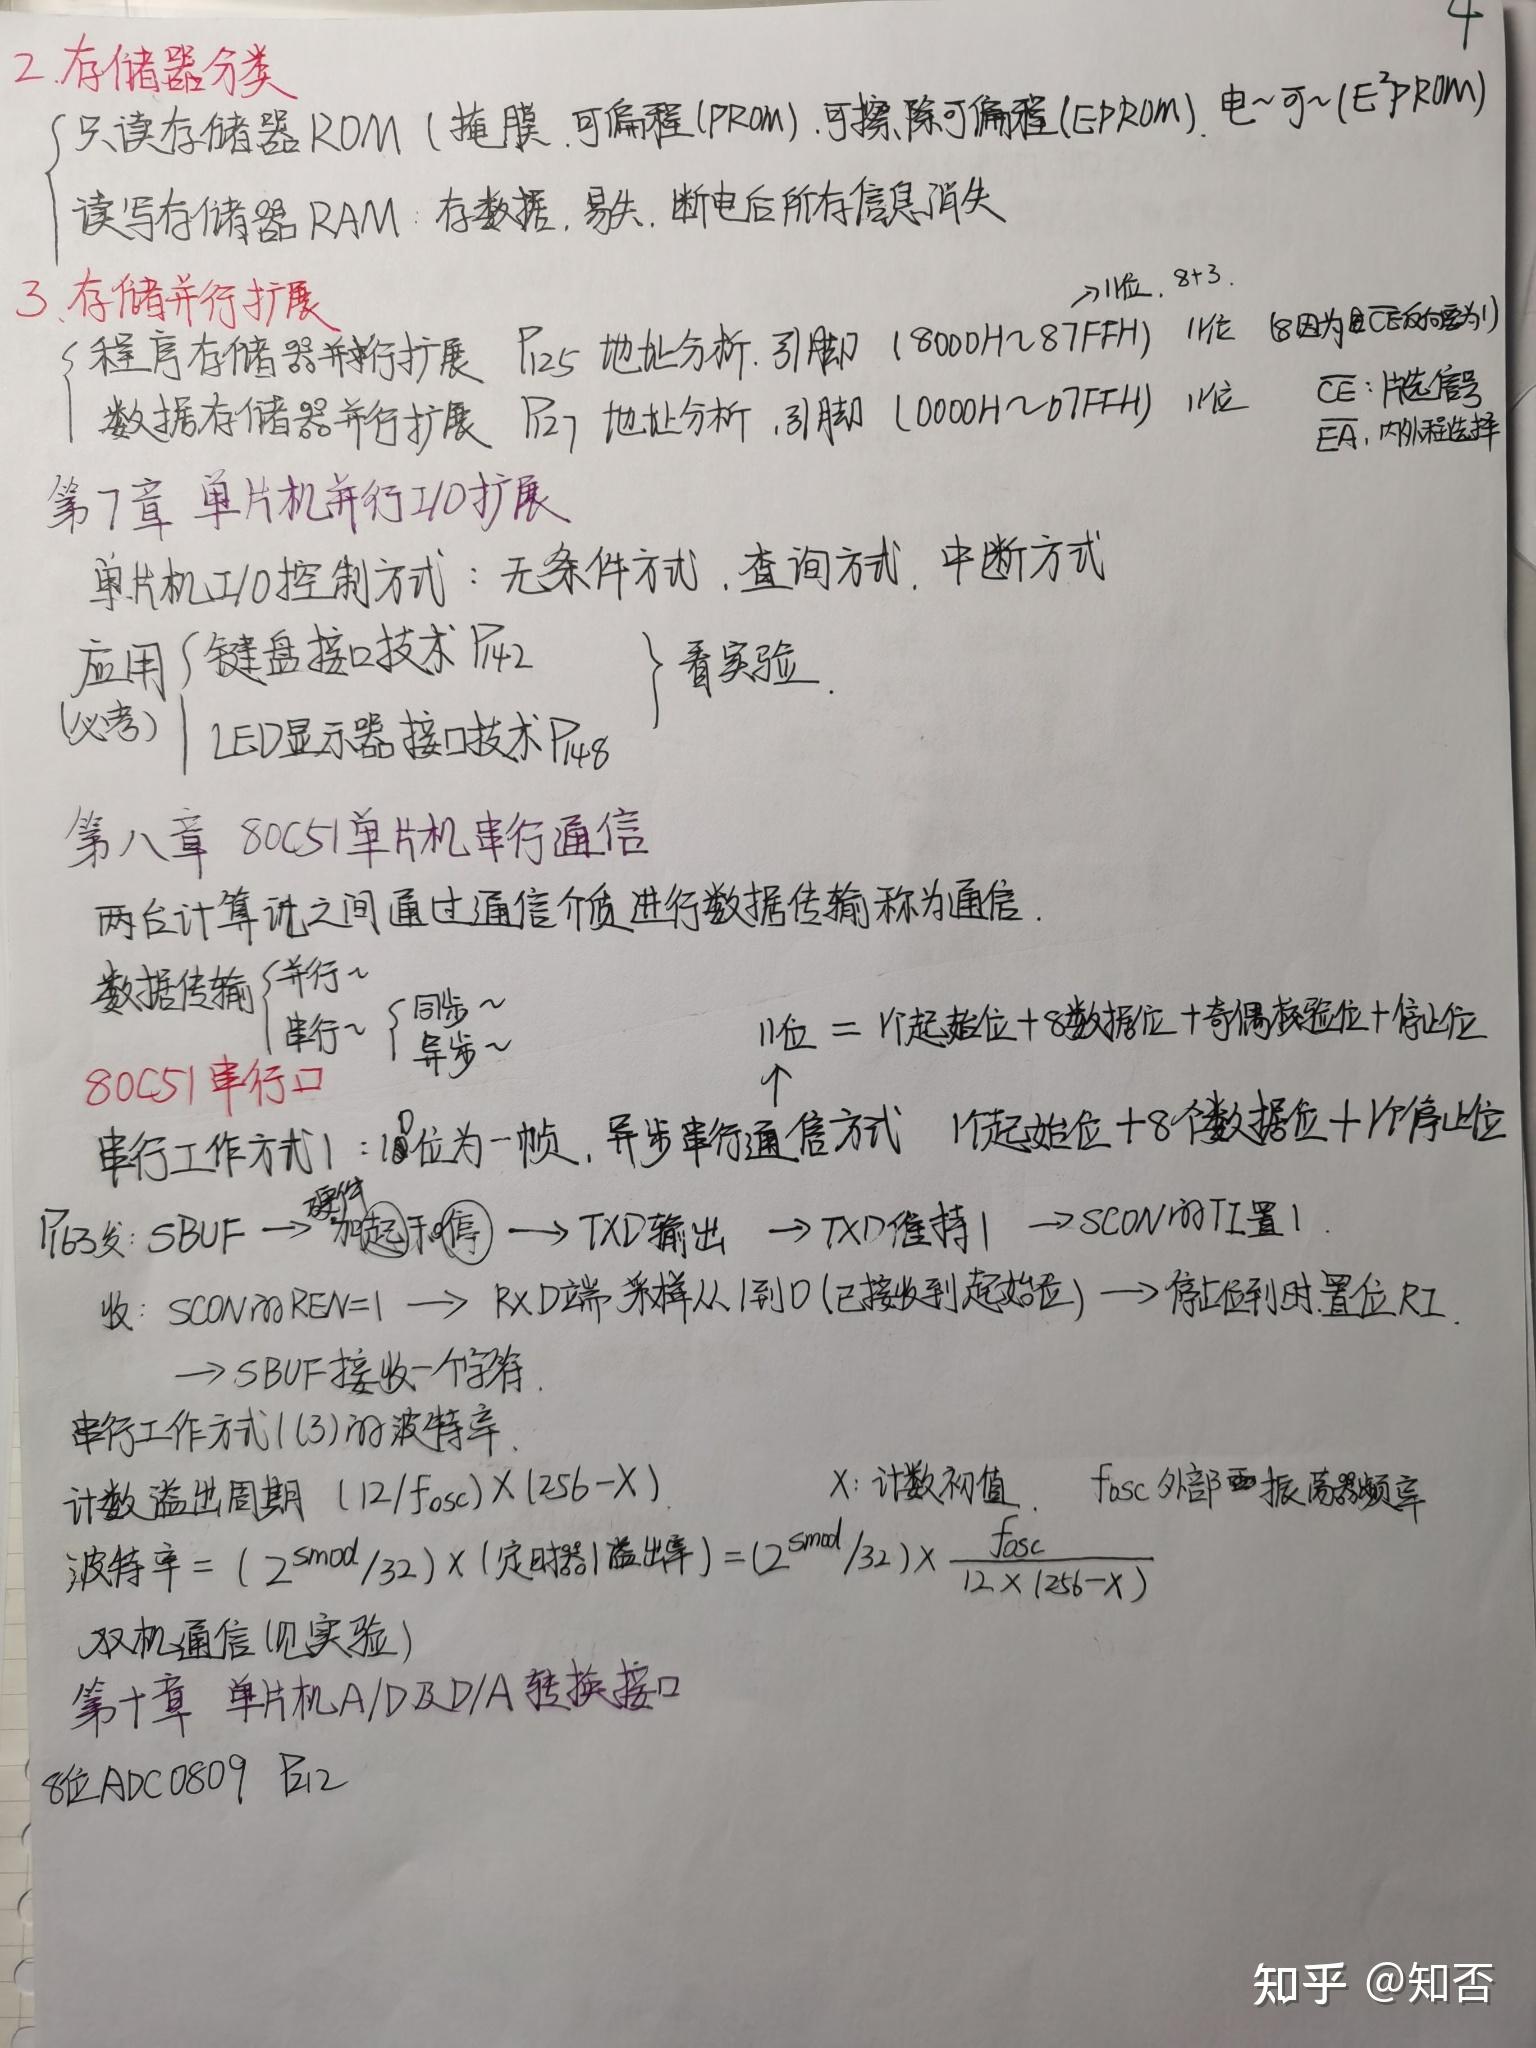 4
2.存储器分类
只读存储器ROM(掩膜.可编程(PROM).可擦除可编程(EPROM).电~可~(E²PROM)
读写存储器RAM:存数据.易失.断电后所存信息消失
3.存储并行扩展
→11位.8+3.
程序存储器并行扩展 P125 地址分析.引脚 (8000H~87FFH) 11位 (8因为
数据存储器并行扩展 P127 地址分析.引脚 (0000H~07FFH) 11位
CE:片选信号
EA.内外程选择
第7章 单片机并行I/O扩展
单片机I/O控制方式:无条件方式.查询方式.中断方式
应用(必考)
键盘接口技术P142
LED显示器接口技术P148
看实验.
第八章 80C51单片机串行通信
两台计算机之间通过通信介质进行数据传输称为通信.
数据传输
并行~
串行~
同步~
异步~
11位=1个起始位+8数据位+奇偶校验位+停止位
↑
80C51串行口
串行工作方式1:10位为一帧.异步串行通信方式 1个起始位+8个数据位+1个停止位
P163发:SBUF→硬件加起和停→TXD输出→TXD维持1→SCON的TI置1.
收:SCON的REN=1→RXD端采样从1到0(已接收到起始位)→停止位到时.置位RI.
→SBUF接收一个字符.
串行工作方式1(3)的波特率.
计数溢出周期 (12/fosc)×(256-X). X:计数初值. fosc外部振荡器频率
波特率=(2^smod/32)×(定时器1溢出率)=(2^smod/32)×fosc/12×(256-X)
双机通信(见实验)
第十章 单片机A/D及D/A转换接口
8位ADC0809 P212
知乎 @知否